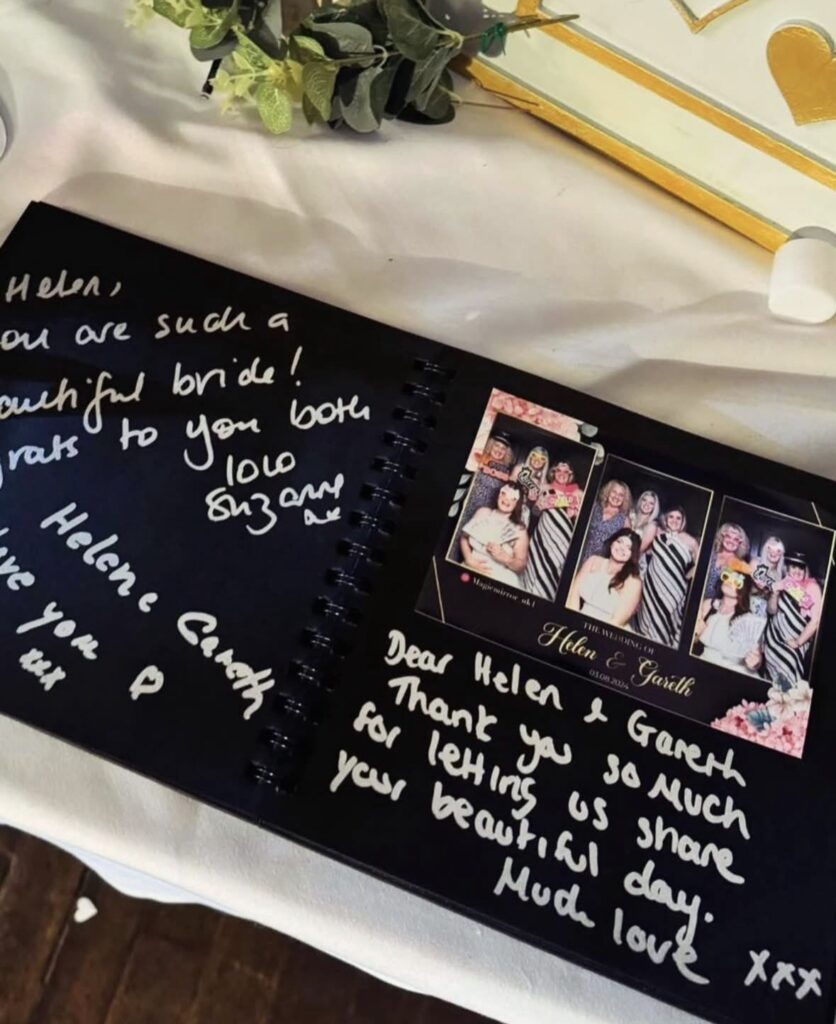 Helen,
ou are such a
autiful bride!
rats to you both
lolo
Suzanne
xx
Helen & Gareth
ve you
xxx
Magicmirror_uk1
THE WEDDING OF
Helen & Gareth
03.08.2024
Dear Helen & Gareth
Thank you so Much
for letting us share
your beautiful day.
Much love xxx